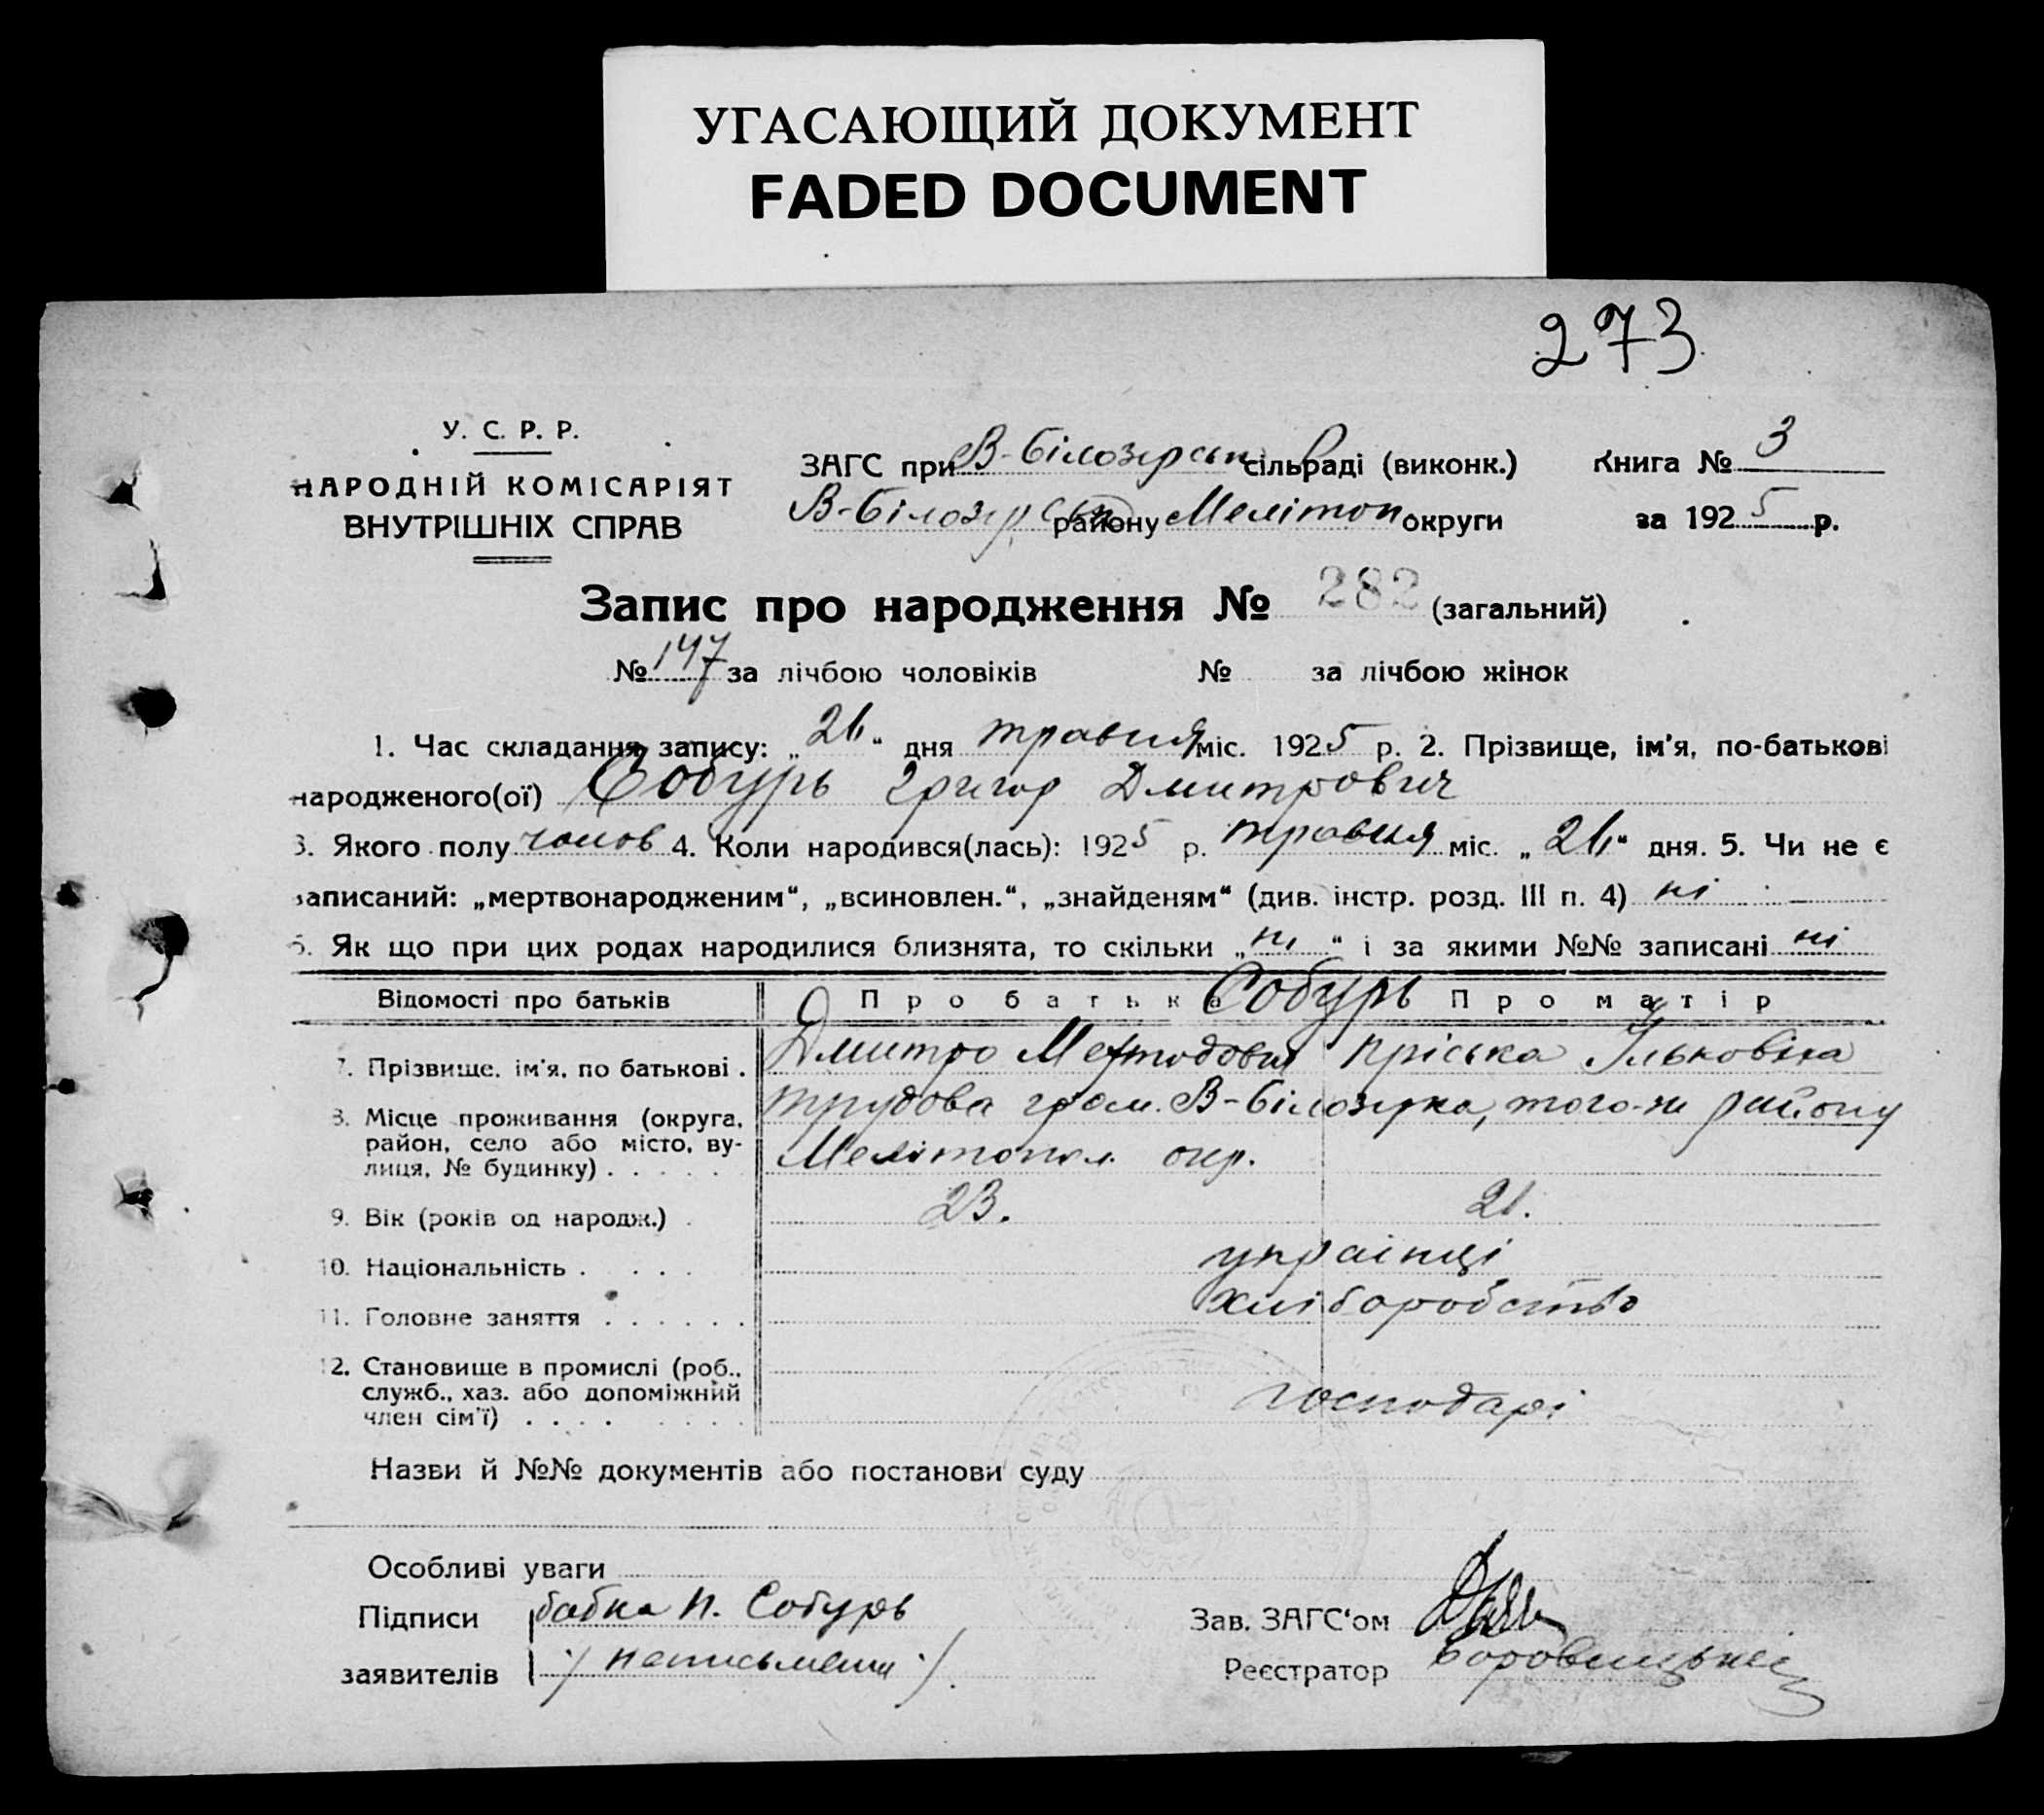 УГАСАЮЩИЙ ДОКУМЕНТ
FADED DOCUMENT
273
У. С. Р. Р.
НАРОДНІЙ КОМІСАРІЯТ
ВНУТРІШНІХ СПРАВ
ЗАГС при В-Білозірськ сільраді (виконк.)
В-Білозірськ району Мелітоп. округи
Книга № 3
за 1925 р.
Запис про народження № 282 (загальний)
№ 147 за лічбою чоловіків № за лічбою жінок
1. Час складання запису: „26“ дня травня міс. 1925 р. 2. Прізвище, ім'я, по-батькові
народженого(ої) Собурь Григор Дмитрович
3. Якого полу чолов 4. Коли народився(лась): 1925 р. травня міс. „26“ дня. 5. Чи не є
записаний: „мертвонародженим“, „всиновлен.“, „знайденям“ (див. інстр. розд. III п. 4) ні
6. Як що при цих родах народилися близнята, то скільки „ні“ і за якими №№ записані ні
Відомості про батьків Про батька Собурь Про матір
7. Прізвище, ім'я, по батькові . Дмитро Пріська Ільковна
8. Місце проживання (округа, район, село або місто, вулиця, № будинку) . . . . .
трудова гром. В-Білозірка, того-ж району
Мелітопол. окр.
9. Вік (років од народж.) . 23. 21.
10. Національність . . . . . українці
11. Головне заняття . . . . . . хліборобство
12. Становище в промислі (роб.,
служб., хаз. або допоміжний
член сім'ї) . . . . . . . . господарі
Назви й №№ документів або постанови суду
Особливі уваги
Підписи бабка П. Собурь
заявителів неписьмення
Зав. ЗАГС'ом
Реєстратор